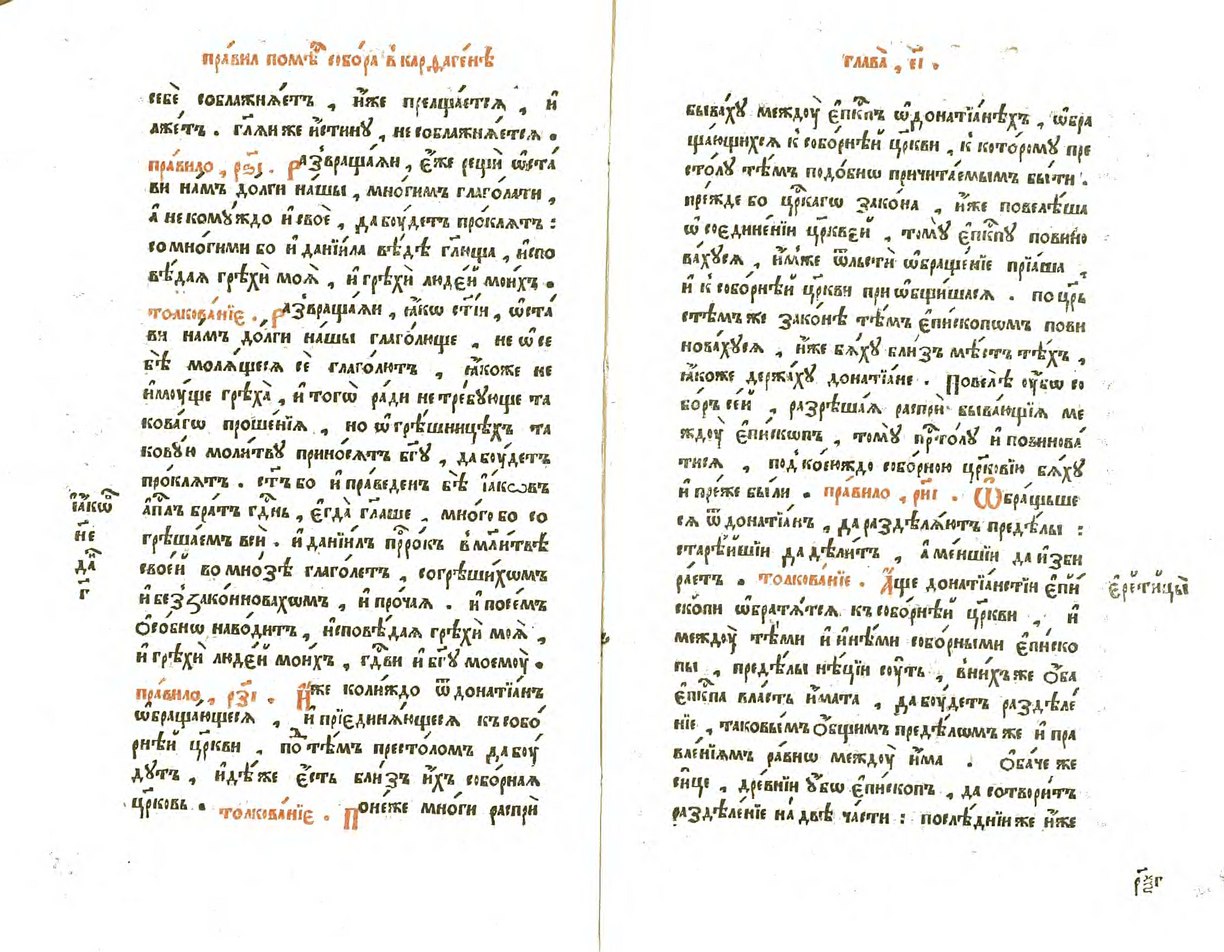 пра́вил помѣ́ⷭ҇ собо́ра в̾ карѳаге́нѣ
себѐ соблажнѧ́етъ , и҆́же преща́етсѧ , и҆
лже́тъ . гл҃ѧи же и҆́стинꙋ , не соблажнѧ́етсѧ .
пра́вило , рѕ҃і . Развраща́ѧи , є҆́же рещѝ ѡ҆ста́
ви на́мъ до́лги на́шы , мно́гимъ глаго́лати ,
а҆ не комꙋ́ждо и҆ своѐ , да бꙋ́детъ про́клѧтъ :
со мно́гими бо и҆ данїи́ла вѣ́дѣ гл҃юща , и҆спо
вѣ́даѧ грѣхѝ моѧ̀ , и҆ грѣхѝ люде́й мои́хъ .
толкова́нїе . Развраща́ѧи , ꙗ҆́кѡ ст҃і́и , ѡ҆ста́
ви на́мъ до́лги на́шы глаго́люще , не ѡ҆ се
бѣ̀ молѧ́щесѧ сѐ глаго́лютъ , ꙗ҆́коже не
и҆мꙋ́ще грѣха̀ , и҆ тогѡ̀ ра́ди не тре́бꙋюще та
кова́гѡ проше́нїѧ , но ѡ҆ грѣ́шницѣхъ та
ковꙋ́ю моли́твꙋ прино́сѧтъ бг҃ꙋ , да бꙋ́детъ
про́клѧтъ . ст҃ъ бо и҆ пра́веденъ бѣ̀ і҆а́кѡвъ
а҆пⷭ҇лъ бра́тъ гдⷭ҇нь , є҆гда̀ гл҃аше , мно́го бо со
грѣша́емъ всѝ . и҆ данїи́лъ прⷪ҇ро́къ в̾ мл҃и́твѣ
свое́й во мно́зѣ глаго́летъ , согрѣши́хѡмъ
и҆ беззако́нновахѡмъ , и҆ про́чаѧ . и҆ по се́мъ
ѻ҆со́бнѡ наво́дитъ , и҆сповѣ́даѧ грѣхѝ моѧ̀ ,
и҆ грѣхѝ люде́й мои́хъ , гдⷭ҇ви и҆ бг҃ꙋ моемꙋ̀ .
пра́вило , рз҃і . И҆̀же коли́ждо ѿ донатїа́нъ
ѡ҆браща́ющеесѧ , и҆ прїединѧ́ющеесѧ къ собо́
рнѣй цр҃кви , по тѣ́мъ престо́лом да бꙋ́
дꙋтъ , и҆дѣ́же є҆́сть бли́зъ и҆́хъ собо́рнаѧ
цр҃ковь . толкова́нїе . Поне́же мно́ги ра́спри
і҆а́кѡⷡ҇
н҃е
да҃
г҃
глава̀ , є҃і .
быва́хꙋ междꙋ̀ є҆пⷭ҇кпъ ѡ҆ донатїа́нѣхъ , ѡ҆бра
ща́ющихсѧ к̾ собо́рнѣй цр҃кви , к̾ кото́ромꙋ пре
сто́лꙋ тѣ́мъ подо́бнѡ причита́емымъ бы́ти .
пре́жде бо цр҃кагѡ зако́на , и҆́же повелѣ́ша
ѡ҆ соедине́нїи цр҃кве́й , томꙋ̀ є҆пⷭ҇кпꙋ пови́нꙋ
вахꙋсѧ , и҆́мже ѿ ле́сти ѡ҆браще́нїе прїа́ша ,
и҆ к̾ собо́рнѣй цр҃кви приѡ҆бщи́шасѧ . по цр҃ь
стѣ́мъ же зако́нѣ тѣ́мъ є҆пи́скопѡмъ пови
нова́хꙋсѧ , и҆́же бѧ́хꙋ бли́зъ мѣ́стъ тѣ́хъ ,
ꙗ҆́коже держа́хꙋ донатїа́не . Повелѣ̀ ᲂу҆́бѡ со
бо́ръ се́й , разрѣша́ѧ ра́спри быва́ющїѧ ме
ждꙋ̀ є҆пи́скопъ , томꙋ̀ прⷭ҇то́лꙋ и҆ повинова́
тисѧ , под̾ кое́юждо собо́рною цр҃ковїю бѧ́хꙋ
и҆ пре́же бы́ли . пра́вило , ри҃і . Ѡ҆бра́щьше
сѧ ѿ донатїа́нъ , да раздѣлѧ́ютъ предѣ́лы :
старѣ́йшїи да дѣли́тъ , а҆ ме́ншїи да и҆зби
ра́етъ . толкова́нїе . А҆́ще донатїа́нстїи є҆пи́
скопи ѡ҆братѧ́тсѧ къ собо́рнѣй цр҃кви , и҆
междꙋ̀ тѣ́ми и҆ и҆нѣ́ми собо́рными є҆пи́ско
пы , предѣ́лы нѣ́цїи сꙋ́ть , в̾ ни́хъ же ѻ҆́ба
є҆пⷭ҇кпа вла́сть и҆́мата , да бꙋ́детъ раздѣле́
нїе , таковы́мъ ѻ҆́бщимъ предѣ́лѡмъ же и҆ пра
вле́нїѧмъ ра́внѡ междꙋ̀ и҆́ма . Ѻ҆ба́че же
си́це , дре́внїи ᲂу҆́бѡ є҆пи́скопъ , да сотвори́тъ
раздѣле́нїе на́ двѣ ча́сти : послѣ́днїи же и҆́же
є҆рети́цы
рк҃г